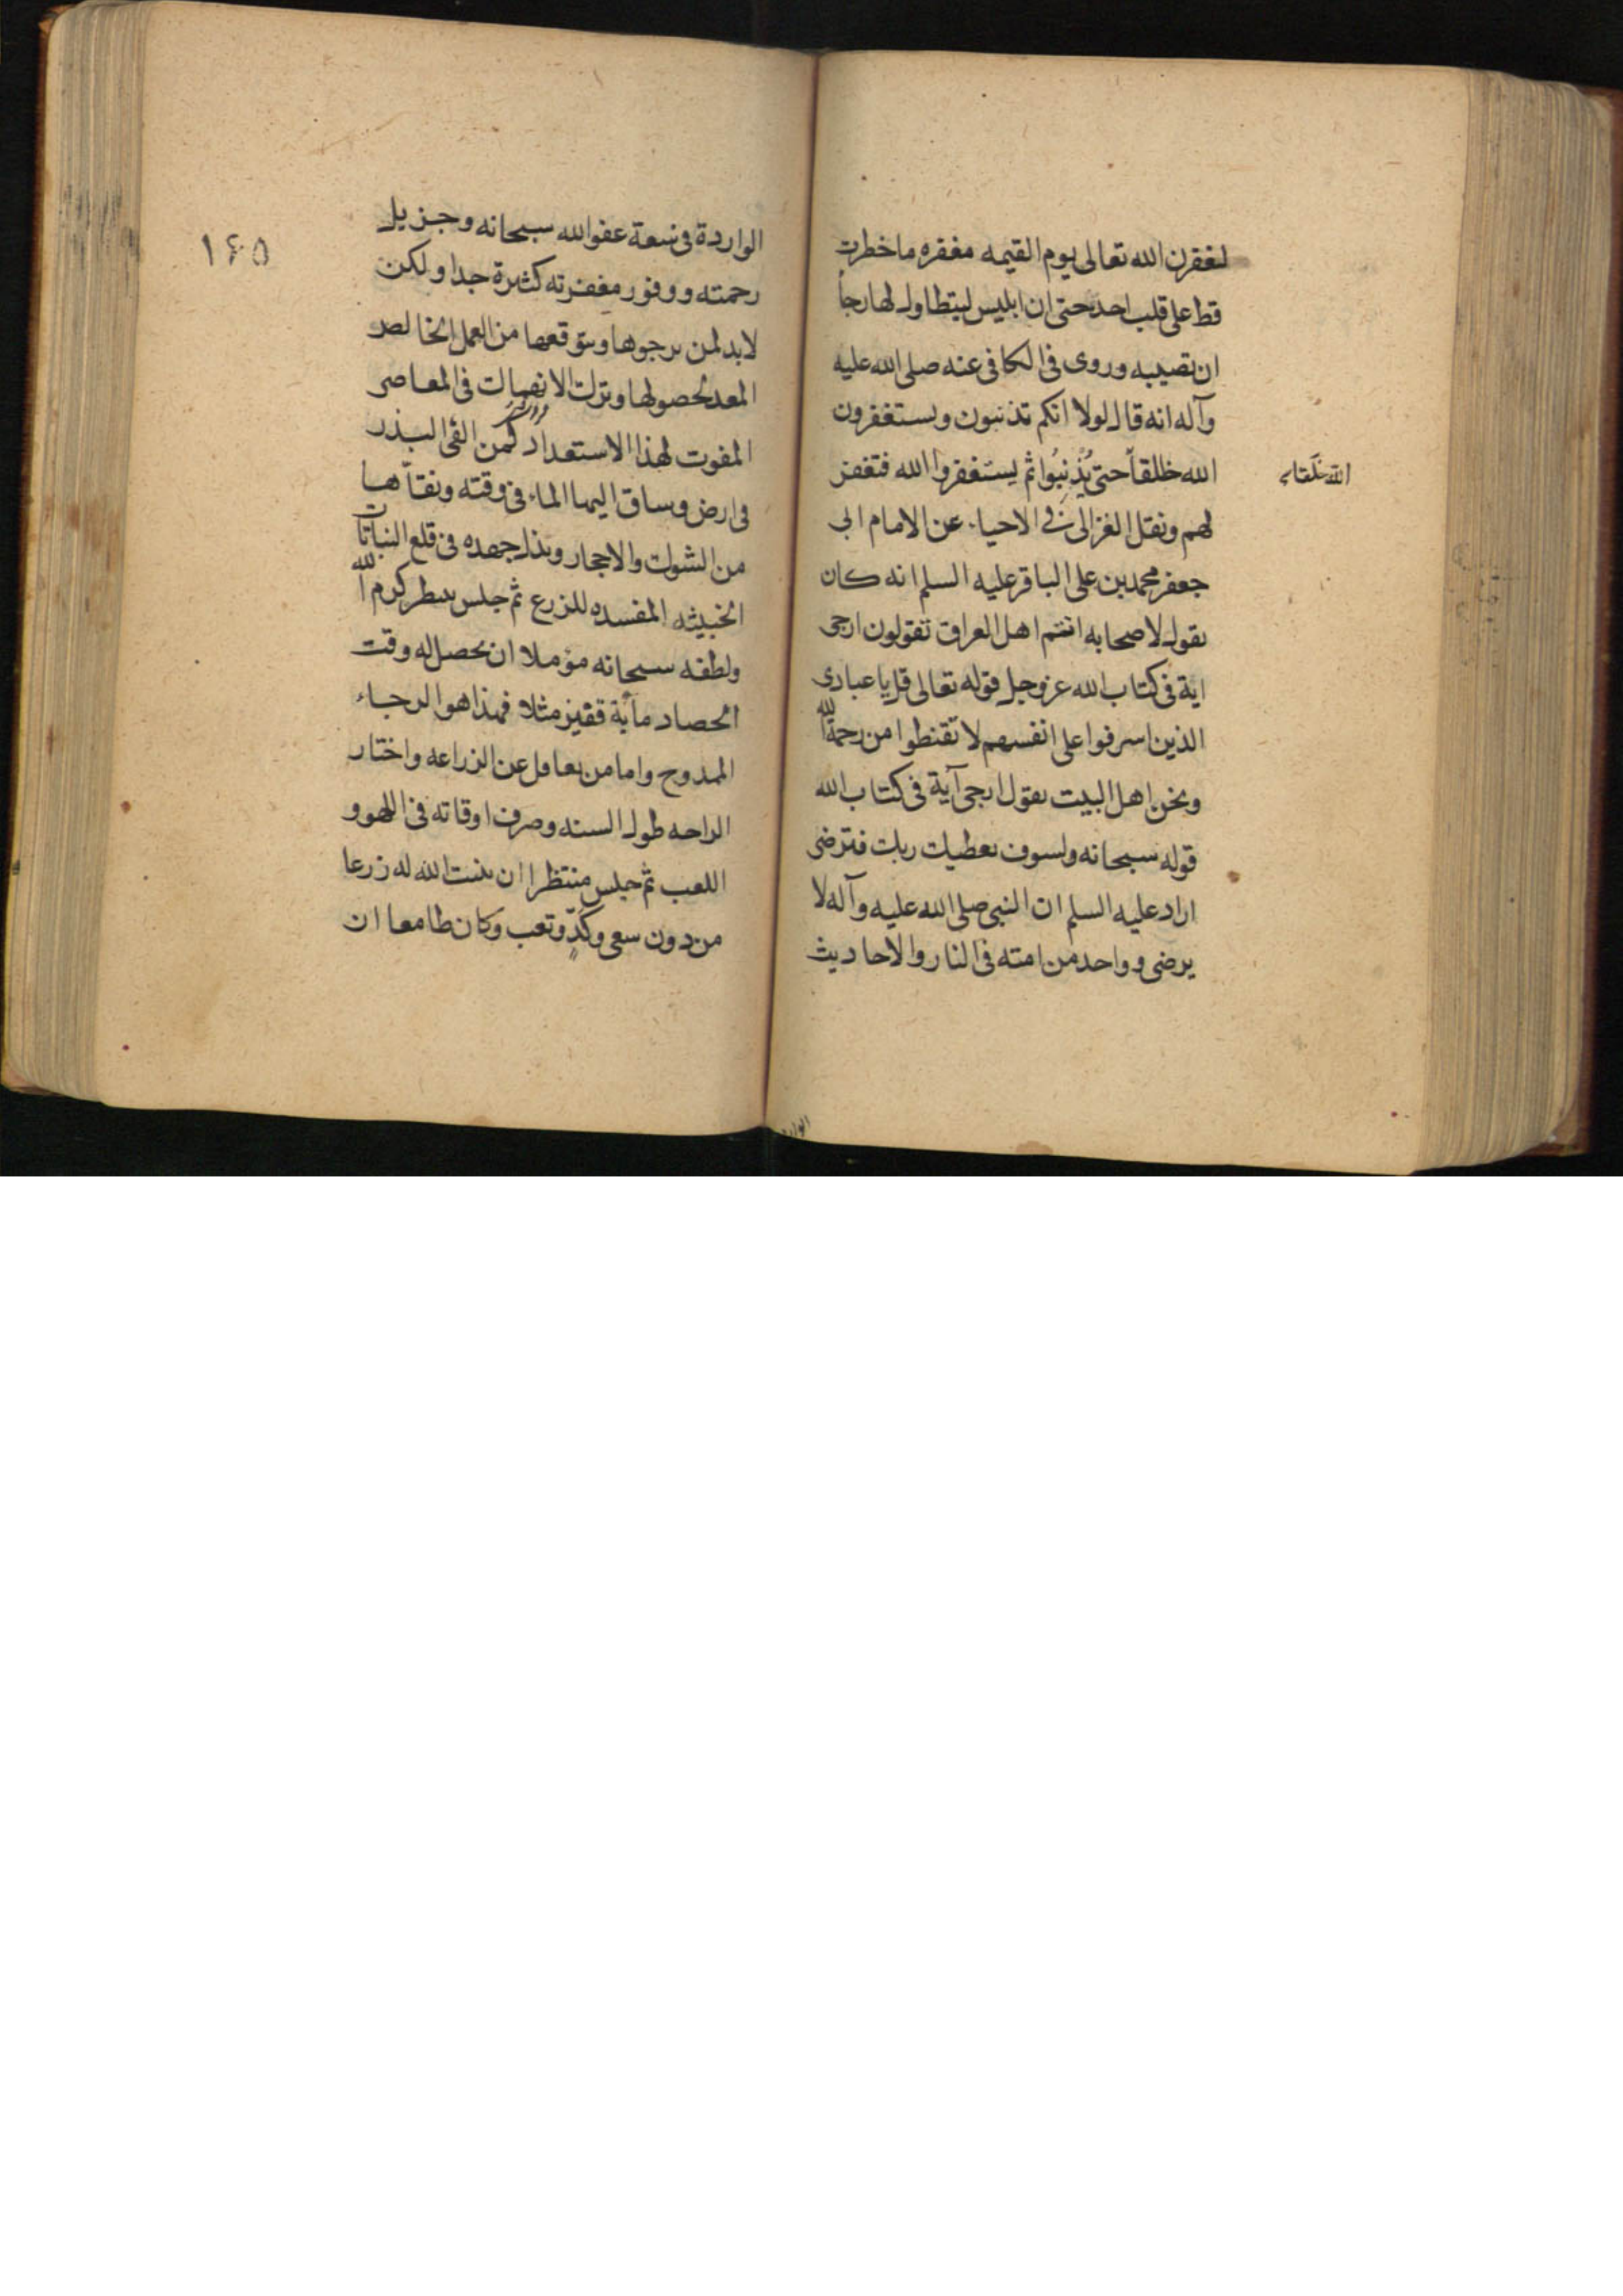 لغفرن الله تعالى يوم القيمه مغفره ما خطرت
قط على قلب احد حتى ان ابليس ليتطاول لها رجاً
ان تصيبه وروى فى الكافى عنه صلى الله عليه
وآله انه قال لولا انكم تذنبون وتستغفرون
الله خللقاً حتى يُذنِبُوا ثم يستغفروا الله فتغفر
لهم ونقل الغزالى فى الاحياء عن الامام ابى
جعفر محمد بن على الباقر عليه السلم انه كان
يقول لاصحابه انتم اهل العراق تقولون ارجى
اية فى كتاب الله عز وجل قوله تعالى قل يا عبادى
الذين اسرفوا على انفسهم لا تقنطوا من رحمة الله
ونحن اهل البيت نقول ارجى آية فى كتاب الله
قوله سبحانه ولسوف يعطيك ربك فترضى
اراد عليه السلم ان النبى صلى الله عليه وآله لا
يرضى وواحد من امته فى النار والاحاديث
الوارد
١۶۵
الواردة فى سعة عفو الله سبحانه وجزيل
رحمته ووفور مغفرته كثيرة جدا ولكن
لابد لمن يرجوها ويتوقعها من العمل الخالص
المعد لحصولها وترك الانهماك فى المعاصى
المفوت لهذا الاستعداد كمن القى البذر
فى ارض وساق اليها الماء فى وقته ونقاها
من الشوك والاحجار وبذل جهده فى قلع النباتات
الخبيثه المفسده للزرع ثم جلس ينتظر كرم الله
ولطفه سبحانه مؤملا ان يحصل له وقت
الحصاد مأية قفيز مثلا فهذا هو الرجاء
الممدوح واما من تغافل عن الزراعه واختار
الراحه طول السنه وصرف اوقاته فى اللهو و
اللعب ثم جلس منتظرا ان ينبت الله له زرعا
من دون سعى وكدٍّ وتعب وكان طامعا ان